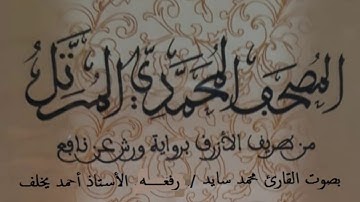 المصحف المحمدي المرتل
من طريق الأزرق برواية ورش عن نافع
بصوت القارئ محمد سايد / رفعه الأستاذ أحمد يخلف